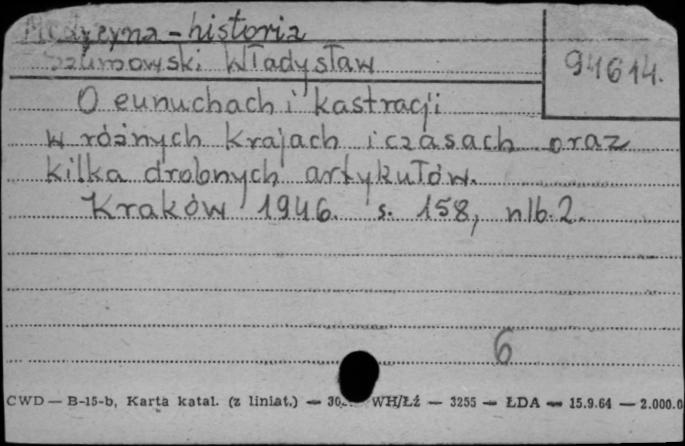 Medycyna - historia
Szumowski Władysław
94614.
O eunuchach i kastracji
w różnych krajach i czasach oraz
kilka drobnych artykułów.
Kraków 1946. s. 158, nlb. 2.
6
CWD — B-15-b, Karta katal. (z liniat.) — WH/Łź — 3255 — ŁDA — 15.9.64 — 2.000.0